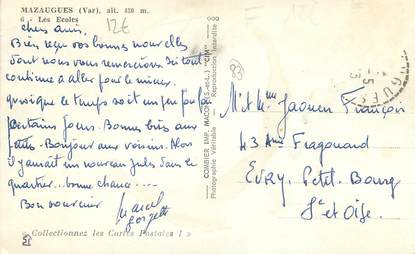 MAZAUGUES (Var), alt. 430 m.
6 - Les Ecoles
12€
chers amis.
Bien reçu vos bonnes nouvelles
dont nous vous remercions. Ici tout
continue à aller pour le mieux
quoique le temps soit un peu
certains jours. Bonnes bises aux
petits. Bonjour aux voisins. Alors
il y aurait un nouveau Jules dans le
quartier... bonne chance...
Bon souvenir
Marcel
Georgette
« Collectionnez les Cartes Postales ! »
COMBIER IMP. MACON (S.-et-L.) "CIM"
Photographie Véritable - Reproduction Interdite
83
M et Mme Jaouen François
43 Ave Fragonard
EVRY. Petit. Bourg
S et Oise.